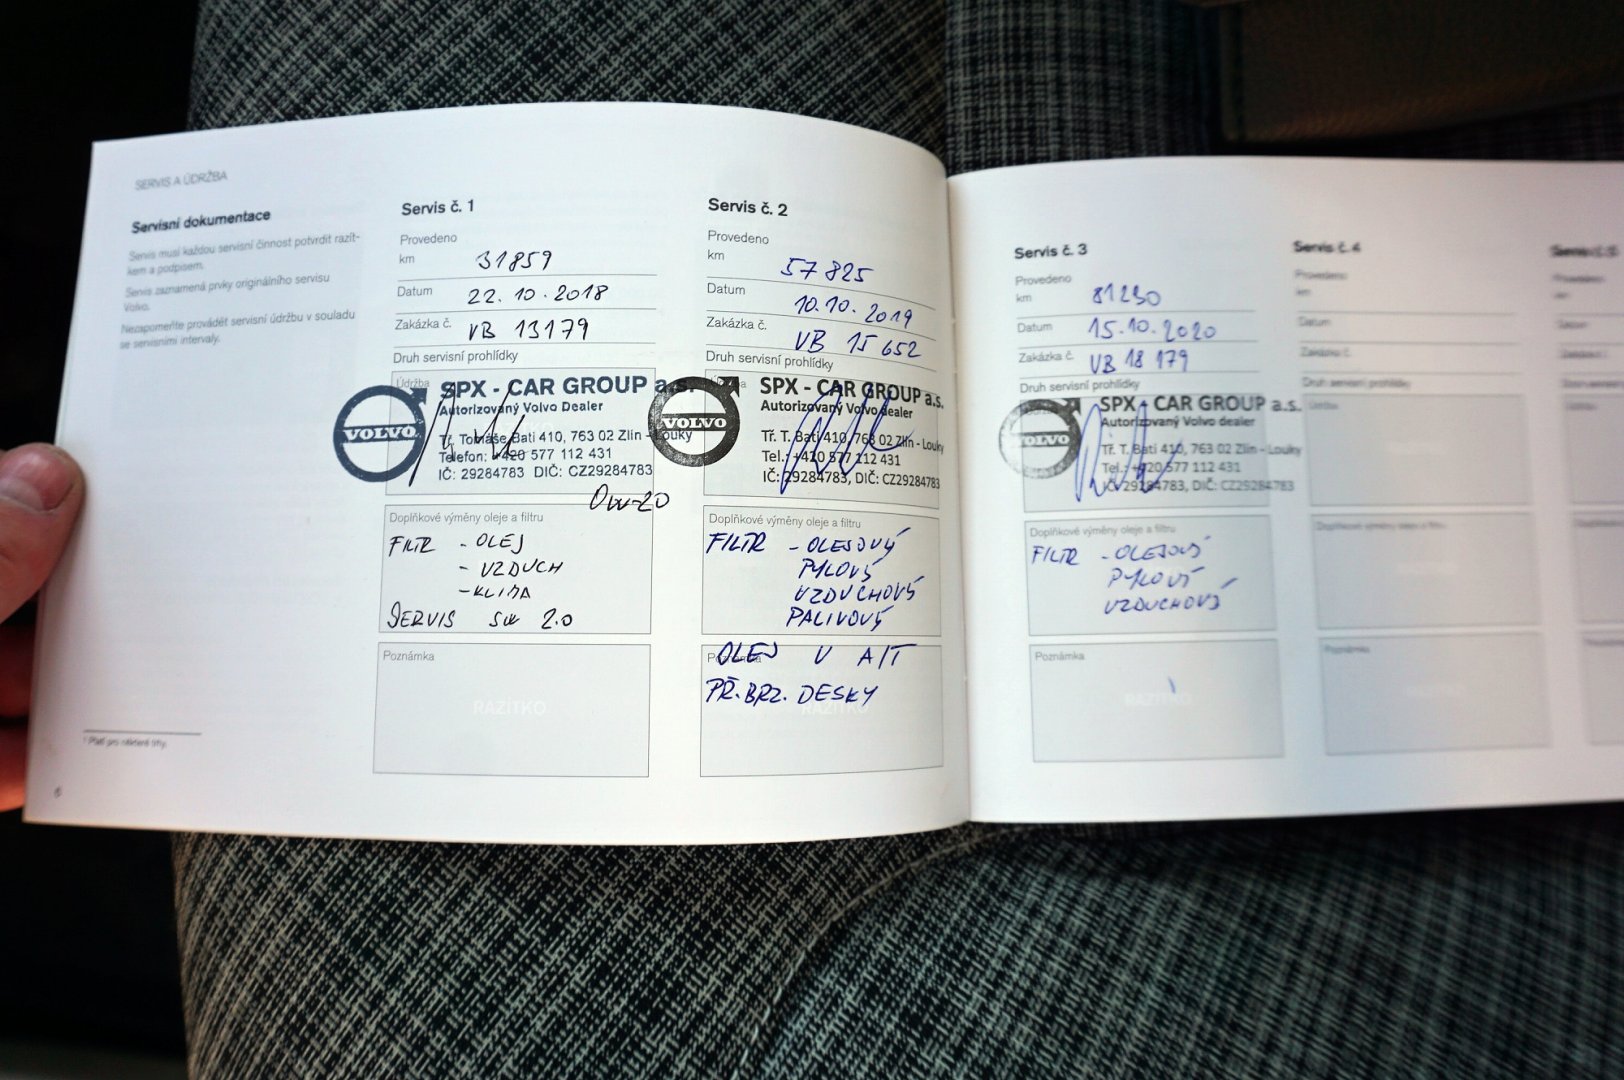 SERVIS A ÚDRŽBA
Servisní dokumentace
Servis musí každou servisní činnost potvrdit razít-
kem a podpisem.
Servis zaznamená prvky originálního servisu
Volvo.
Nezapomeňte provádět servisní údržbu v souladu
se servisními intervaly.
1 Platí pro některé trhy.
6
Servis č. 1
Provedeno
km 31859
Datum 22.10.2018
Zakázka č. VB 13179
Druh servisní prohlídky
Údržba
VOLVO
SPX - CAR GROUP a.s.
Autorizovaný Volvo Dealer
Tř. Tomáše Bati 410, 763 02 Zlín - Louky
Telefon: +420 577 112 431
IČ: 29284783 DIČ: CZ29284783
0W-20
Doplňkové výměny oleje a filtru
FILTR - OLEJ
- VZDUCH
- KLIMA
SERVIS SW 2.0
Poznámka
RAZÍTKO
Servis č. 2
Provedeno
km 57825
Datum 10.10.2019
Zakázka č. VB 15652
Druh servisní prohlídky
VOLVO
SPX - CAR GROUP a.s.
Autorizovaný Volvo dealer
Tř. T. Bati 410, 763 02 Zlín - Louky
Tel.: +420 577 112 431
IČ: 29284783, DIČ: CZ29284783
Doplňkové výměny oleje a filtru
FILTR - OLEJOVÝ
PYLOVÝ
VZDUCHOVÝ
PALIVOVÝ
Poznámka
OLEJ V A/T
PŘ. BRZ. DESKY
RAZÍTKO
Servis č. 3
Provedeno
km 81290
Datum 15.10.2020
Zakázka č. VB 18179
Druh servisní prohlídky
VOLVO
SPX - CAR GROUP a.s.
Autorizovaný Volvo dealer
Tř. T. Bati 410, 763 02 Zlín - Louky
Tel.: +420 577 112 431
IČ: 29284783, DIČ: CZ29284783
Doplňkové výměny oleje a filtru
FILTR - OLEJOVÝ
PYLOVÝ
VZDUCHOVÝ
Poznámka
RAZÍTKO
Servis č. 4
Provedeno
km
Datum
Zakázka č.
Druh servisní prohlídky
Údržba
Doplňkové výměny oleje a filtru
Poznámka
Servis č.
Provedeno
km
Datum